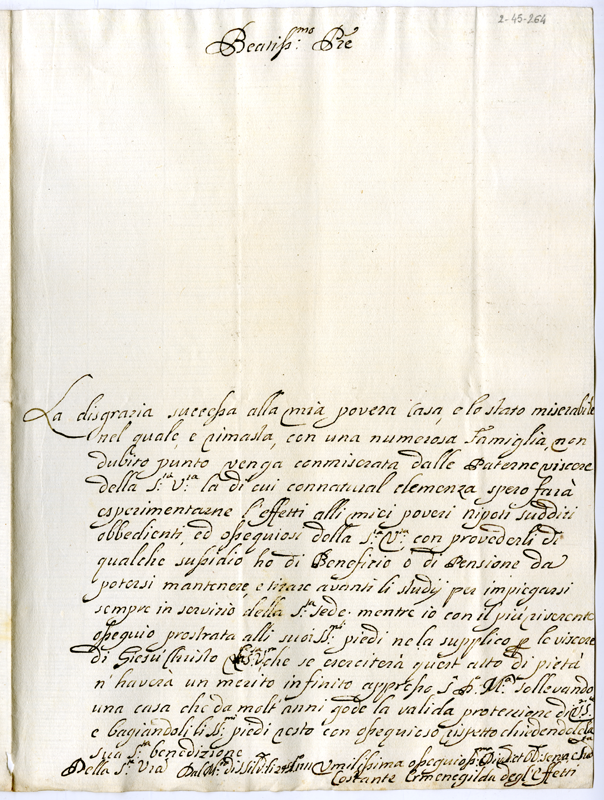 2-45-264
Beatiss:mo Pre
La disgrazia successa alla mia povera Casa, e lo stato miserabile
nel quale, e rimasta, con una numerosa Famiglia, non
dubito punto venga conmiserata dalle Paterne viscere
della S.tà V.ra la di cui connatural clemenza spero farà
esperimentarne l'effetti alli miei poveri nipoti sudditi
obbedienti, ed ossequiosi della S.tà V.ra con provederli di
qualche sussidio ho di Beneficio ò di Pensione da
potersi mantenere, e tirare avanti li studij per impiegarsi
sempre in servizio della S.ta Sede: mentre io con il più riverente
ossequio prostrata alli suoi SS.mi piedi ne la supplico p le viscere
di Giesù Christo che se eserciterà quest'atto di pietà
n'haverà un merito infinito appresso S. D. M.tà sollevando
una casa che da molt'anni gode la valida protezione di V. S.tà
e bagiandoli li SS.mi piedi resto con ossequioso rispetto chiedendole la
sua S.ta benedizione
Della S.tà V.ra Umilissima ossequios.ma
Costante Ermenegilda degl'Effetti